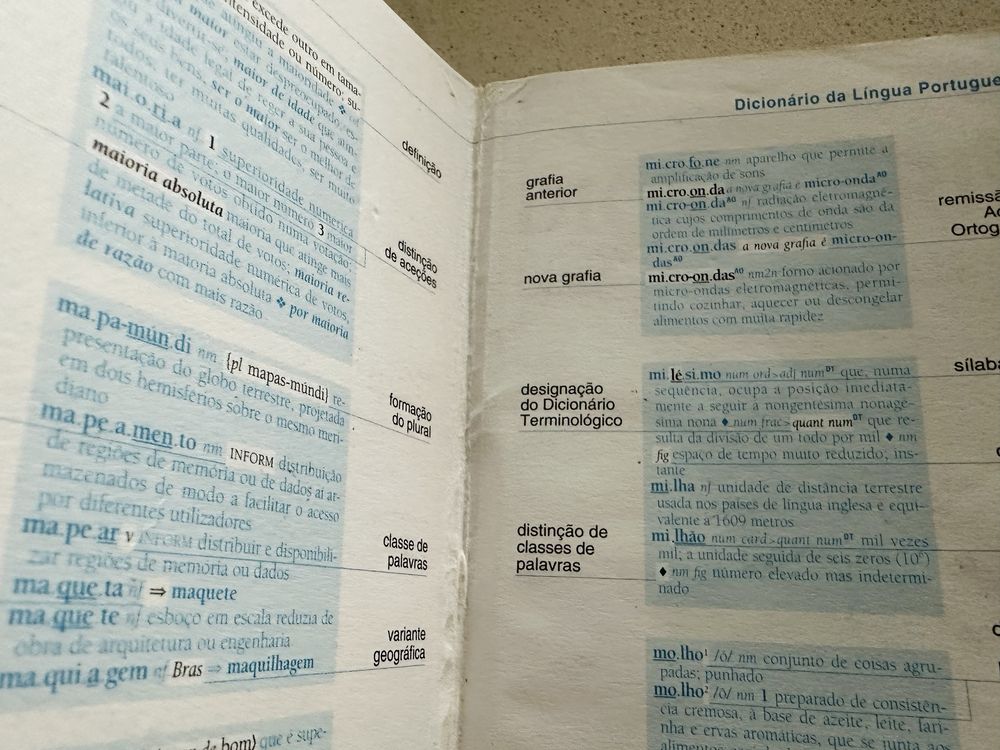 excede outro em tama-
intensidade ou número; su-
atingiu a maioridade ❖
maior estar despreocupado, es-
divertir-se, maior de idade que atin-
idade legal de reger a sua pessoa e
os seus bens, ser o maior ser o melhor de
todos, ter muitas qualidades, ser muito
talentoso
mai.o.ri.a nf 1 superioridade numérica
2 a maior parte; o maior número 3 maior
número de votos obtido numa votação;
maioria absoluta maioria que atinge mais
de metade do total de votos; maioria re-
lativa superioridade numérica de votos,
inferior à maioria absoluta ❖ por maioria
de razão com mais razão
definição
distinção
de aceções
ma.pa-mún.di nm {pl mapas-múndi} re-
presentação do globo terrestre, projetada
em dois hemisférios sobre o mesmo meri-
diano
ma.pe.a.men.to nm INFORM distribuição
de regiões de memória ou de dados aí ar-
mazenados de modo a facilitar o acesso
por diferentes utilizadores
ma.pe.ar v INFORM distribuir e disponibili-
zar regiões de memória ou dados
ma.que.ta nf ⇒ maquete
ma.que.te nf esboço em escala reduzia de
obra de arquitetura ou engenharia
ma.qui.a.gem nf Bras ⇒ maquilhagem
formação
do plural
classe de
palavras
variante
geográfica
de bom) que é supe-
Dicionário da Língua Portugue
grafia
anterior
nova grafia
designação
do Dicionário
Terminológico
distinção de
classes de
palavras
mi.cro.fo.ne nm aparelho que permite a
amplificação de sons
mi.cro.on.da a nova grafia é micro-ondaᴬᴼ
mi.cro-on.daᴬᴼ nf radiação eletromagné-
tica cujos comprimentos de onda são da
ordem de milímetros e centímetros
mi.cro.on.das a nova grafia é micro-on-
dasᴬᴼ
mi.cro-on.dasᴬᴼ nm2n forno acionado por
micro-ondas eletromagnéticas, permi-
tindo cozinhar, aquecer ou descongelar
alimentos com muita rapidez
mi.lé.si.mo num ord>adj numᴰᵀ que, numa
sequência, ocupa a posição imediata-
mente a seguir à nongentésima nonagé-
sima nona ♦ num frac>quant numᴰᵀ que re-
sulta da divisão de um todo por mil ♦ nm
fig espaço de tempo muito reduzido; ins-
tante
mi.lha nf unidade de distância terrestre
usada nos países de língua inglesa e equi-
valente a 1609 metros
mi.lhão num card>quant numᴰᵀ mil vezes
mil; a unidade seguida de seis zeros (10⁶)
♦ nm fig número elevado mas indetermi-
nado
mo.lho¹ /ó/ nm conjunto de coisas agru-
padas; punhado
mo.lho² /ô/ nm 1 preparado de consistên-
cia cremosa, à base de azeite, leite, fari-
nha e ervas aromáticas, que se
alimentos
remissã
Ac
Ortog
sílaba